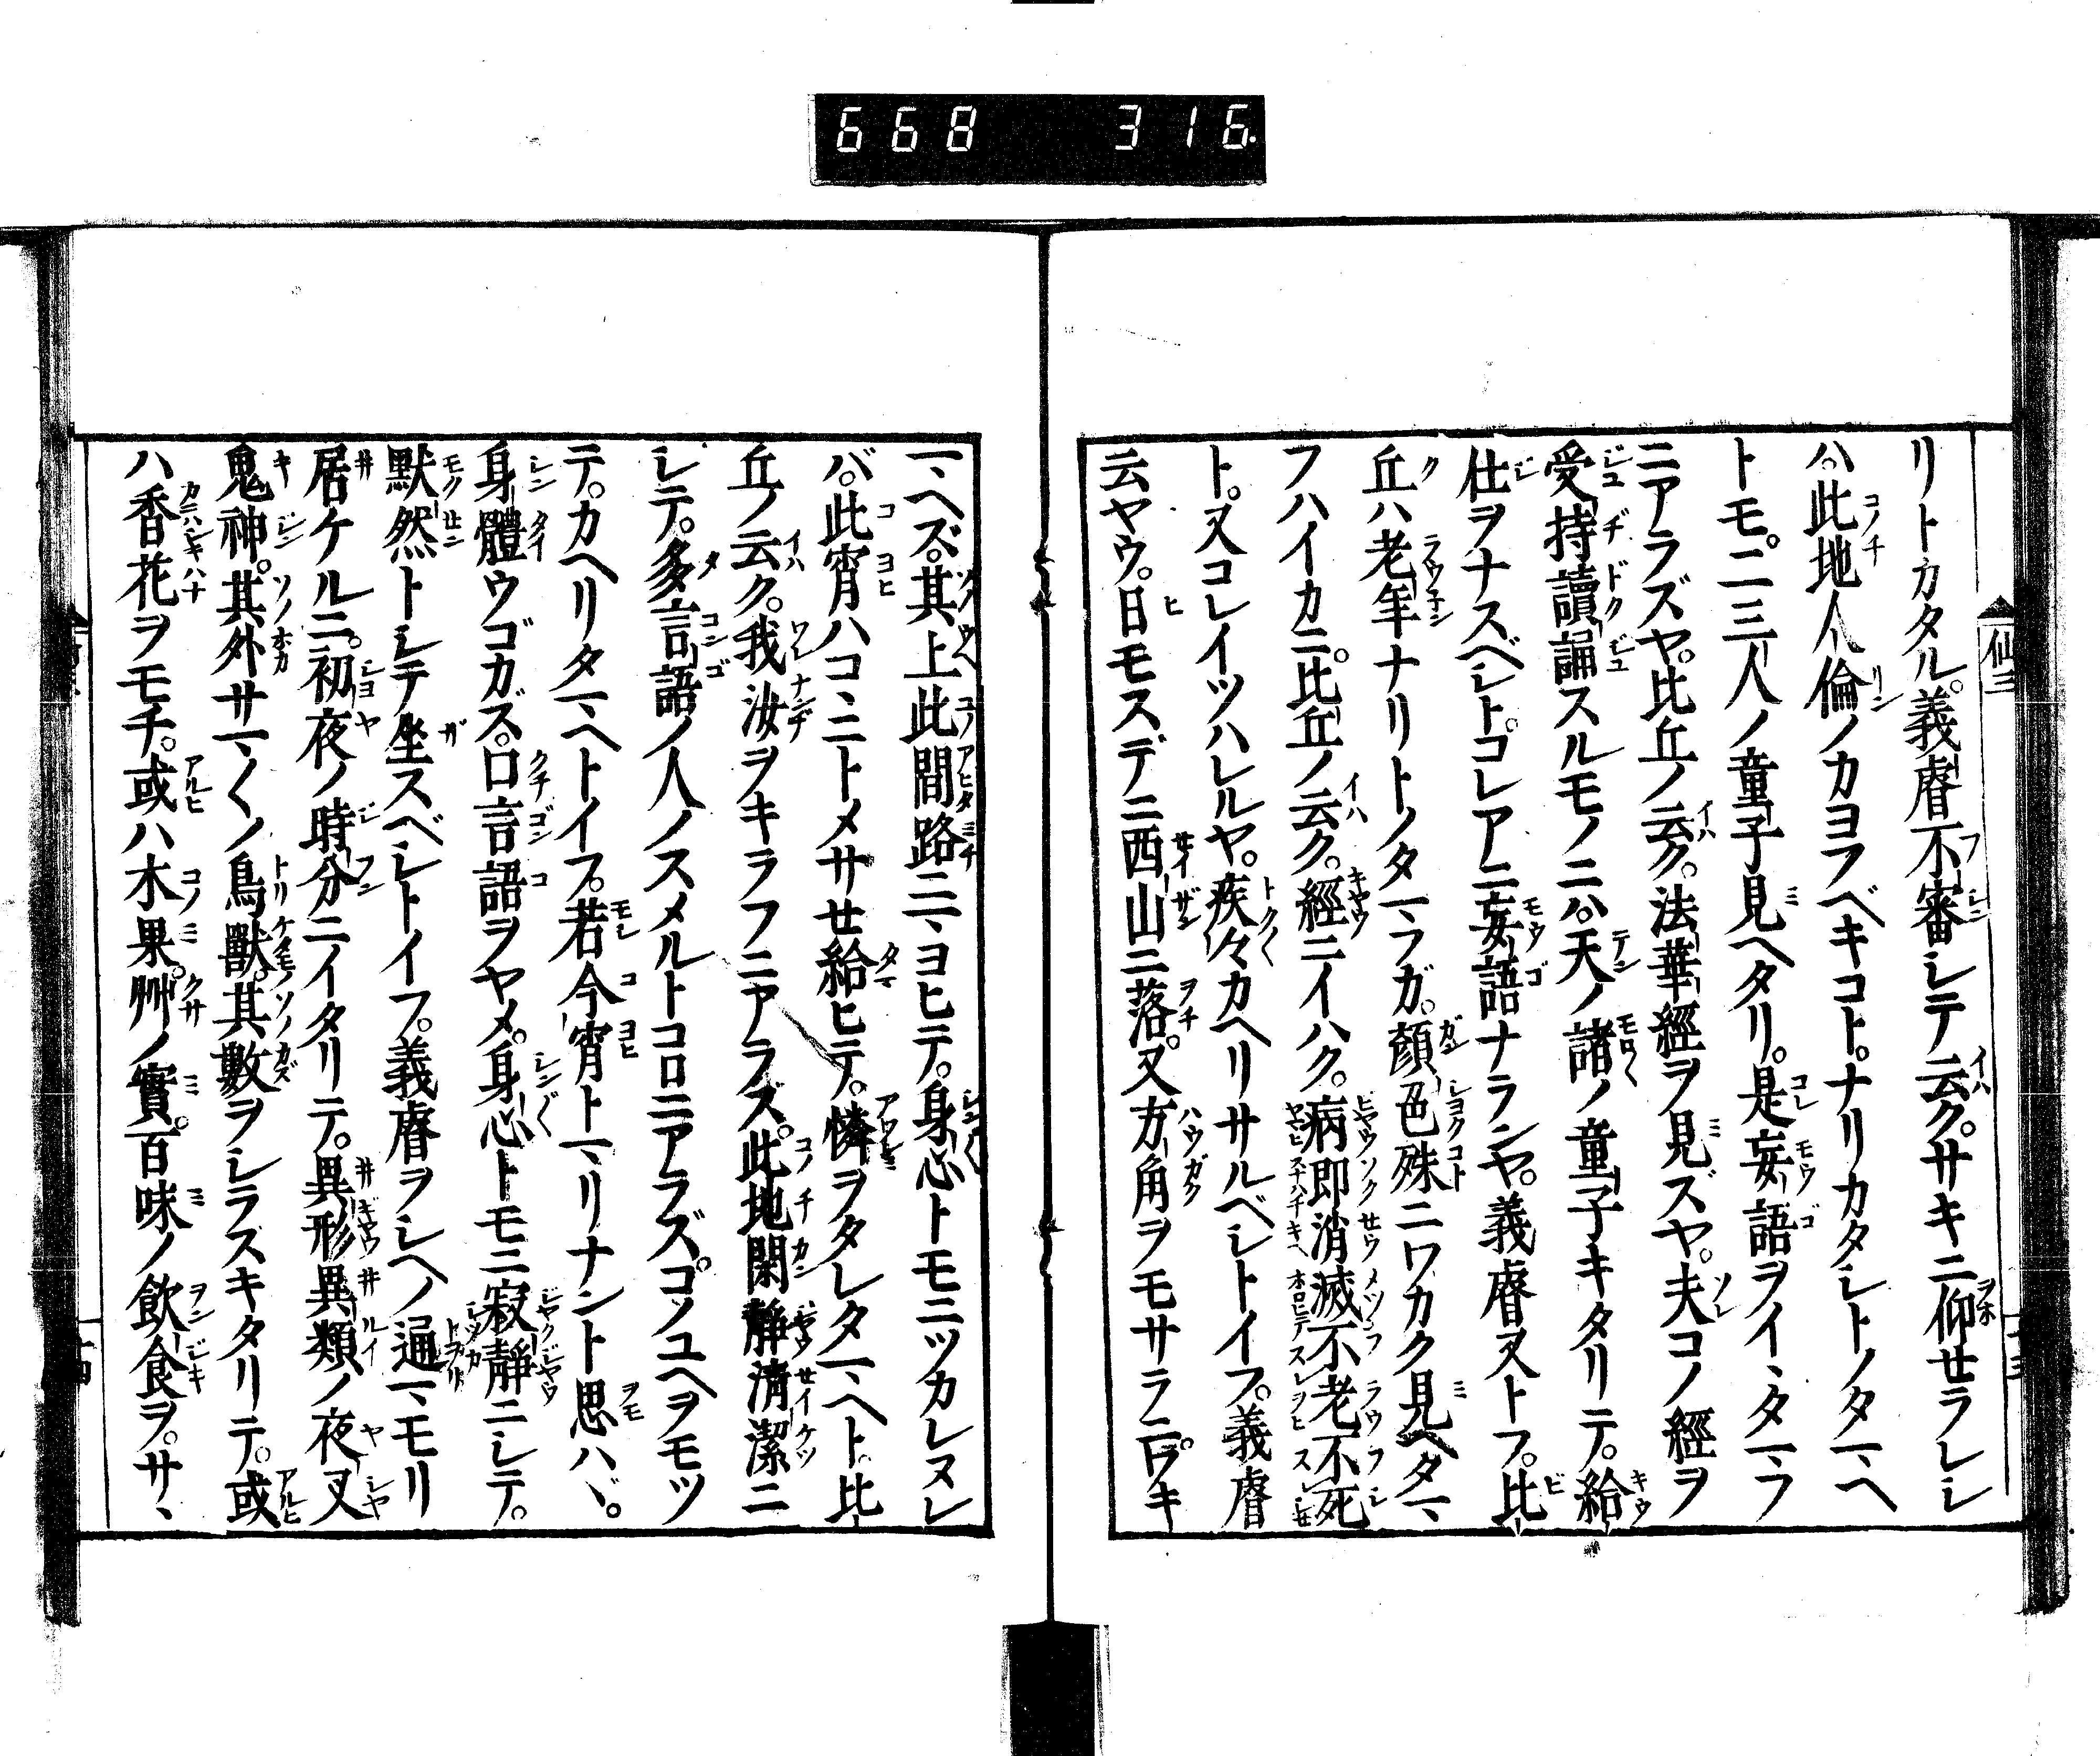 668 316
仙三
リトカタル。義睿不審シテ云ク。サキニ仰セラレシ
ハ。此地人倫ノカヨフベキコト。ナリカタシトノタマヘ
トモ。二三人ノ童子見ヘタリ。是妄語ヲイヽタマフ
ニアラズヤ。比丘ノ云ク。法華經ヲ見ズヤ。夫コノ經ヲ
受持讀誦スルモノニハ。天ノ諸ノ童子キタリテ。給
仕ヲナスベシト。コレアニ妄語ナランヤ。義睿又トフ。比
丘ハ老年ナリトノタマフガ。顏色殊ニワカク見ヘタマ
フハイカニ。比丘ノ云ク。經ニイハク。病即消滅不老不死
ト。又コレイツハレルヤ。疾々カヘリサルベシトイフ。義睿
云ヤウ。日モスデニ西山ニ落。又方角ヲモサラニワキ
マヘズ。其上此間路ニマヨヒテ。身心トモニツカレヌレ
バ。此宵ハコヽニトメサセ給ヒテ。憐ヲタレタマヘト。比
丘ノ云ク。我汝ヲキラフニアラズ。此地閑靜清潔ニ
シテ。多言語ノ人ノスメルトコロニアラズ。コノユヘヲモツ
テ。カヘリタマヘトイフ。若今宵トマリナント思ハヾ。
身體ウゴカズ。口言語ヲヤメ。身心トモニ寂靜ニシテ。
默然トシテ坐スベシトイフ。義睿ヲシヘノ通マモリ
居ケルニ。初夜ノ時分ニイタリテ。異形異類ノ夜叉
鬼神。其外サマ〱ノ鳥獸。其數ヲシラスキタリテ。或
ハ香花ヲモチ。或ハ木果。艸ノ實。百味ノ飲食ヲ。サヽ